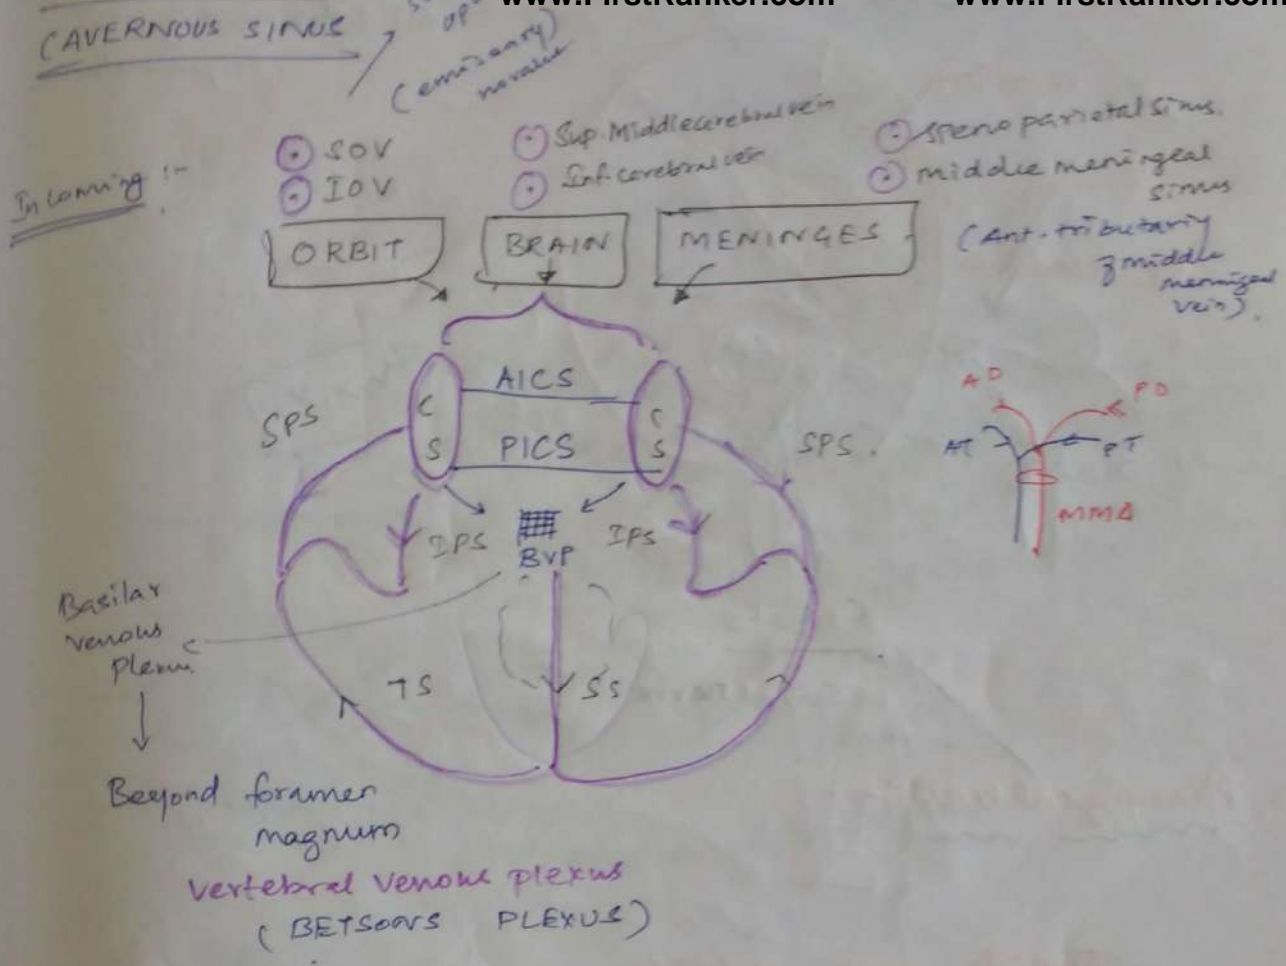 www.FirstRanker.com www.FirstRanker.com
CAVERNOUS SINUS
(emissary)
no valve
Incoming :-
SOV
IOV
Sup. Middle cerebral vein
Inf. cerebral vein
Speno parietal sinus.
middle meningeal
sinus
(Ant. tributariy
of middle
meningeal
vein).
ORBIT
BRAIN
MENINGES
AICS
PICS
CS
CS
SPS
SPS.
IPS
IPS
BVP
TS
SS
AD
PD
AT
PT
MMA
Basilar
venous
Plexu
Beyond foramen
magnum
vertebral venous plexus
(BETSONS PLEXUS)